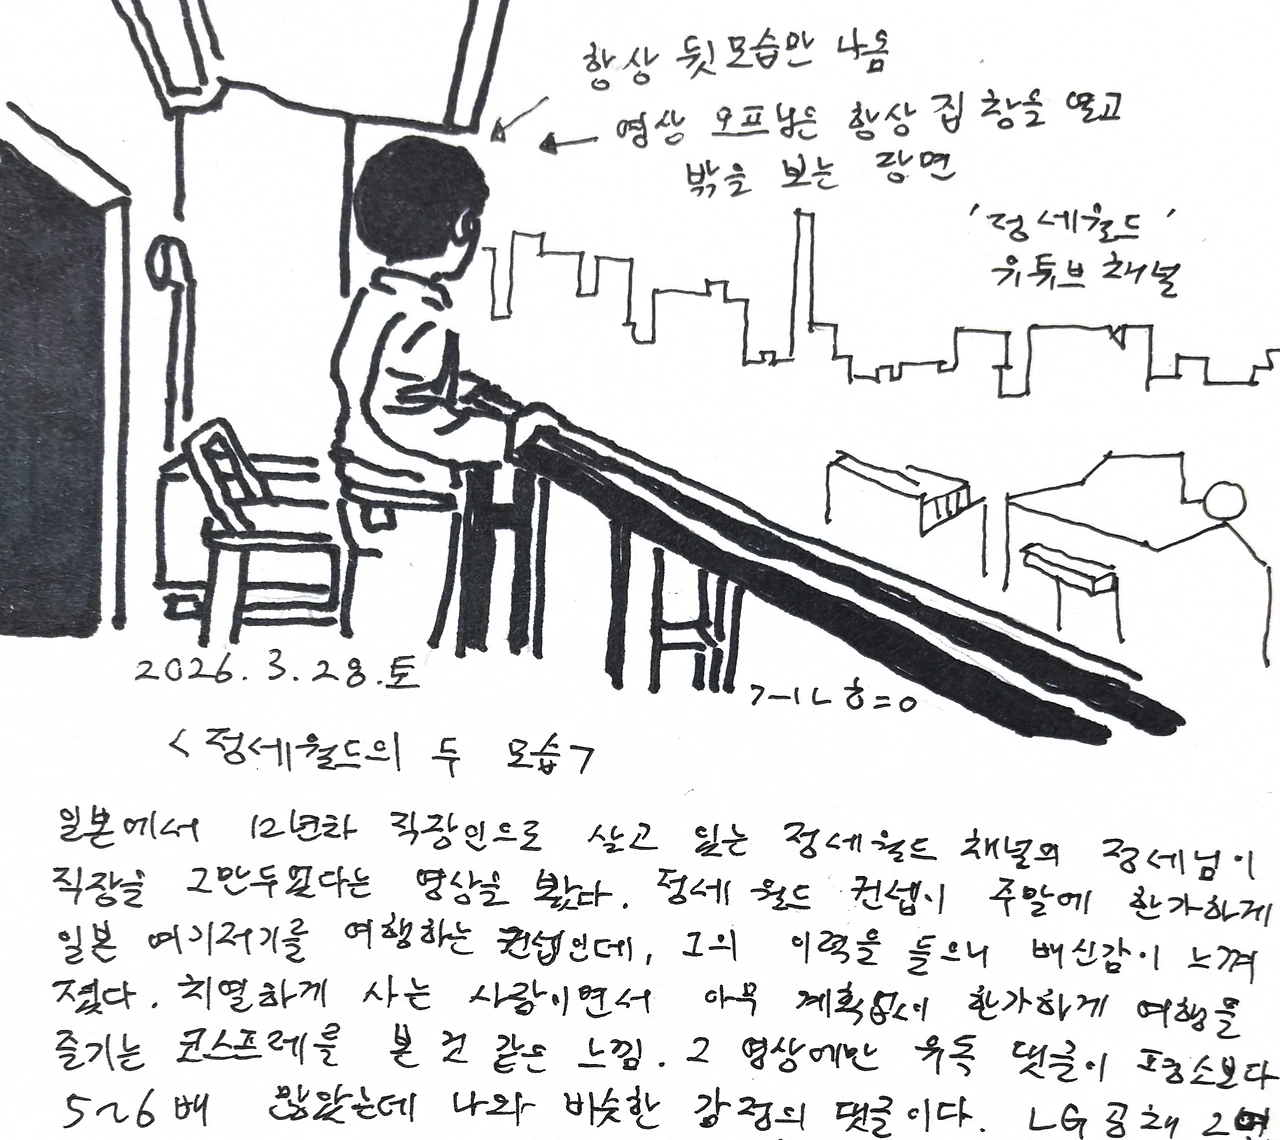 항상 뒷모습만 나옴
영상 오프닝은 항상 집 창을 열고
밖을 보는 장면
'정세월드'
유튜브 채널
2026. 3. 28. 토
< 정세월드의 두 모습>
일본에서 12년차 직장인으로 살고 있는 정세월드 채널의 정세님이
직장을 그만두었다는 영상을 봤다. 정세월드 컨셉이 주말에 한가하게
일본 여기저기를 여행하는 컨셉인데, 그의 이력을 들으니 배신감이 느껴
졌다. 치열하게 사는 사람이면서 아무 계획없이 한가하게 여행을
즐기는 코스프레를 본 것 같은 느낌. 그 영상에만 유독 댓글이 평소보다
5~6배 많았는데 나와 비슷한 감정의 댓글이다. LG 공채 2